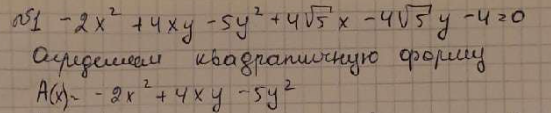 №1 -2x² + 4xy - 5y² + 4√5 x - 4√5 y - 4 = 0
Определяем квадратичную форму
A(x) = -2x² + 4xy - 5y²